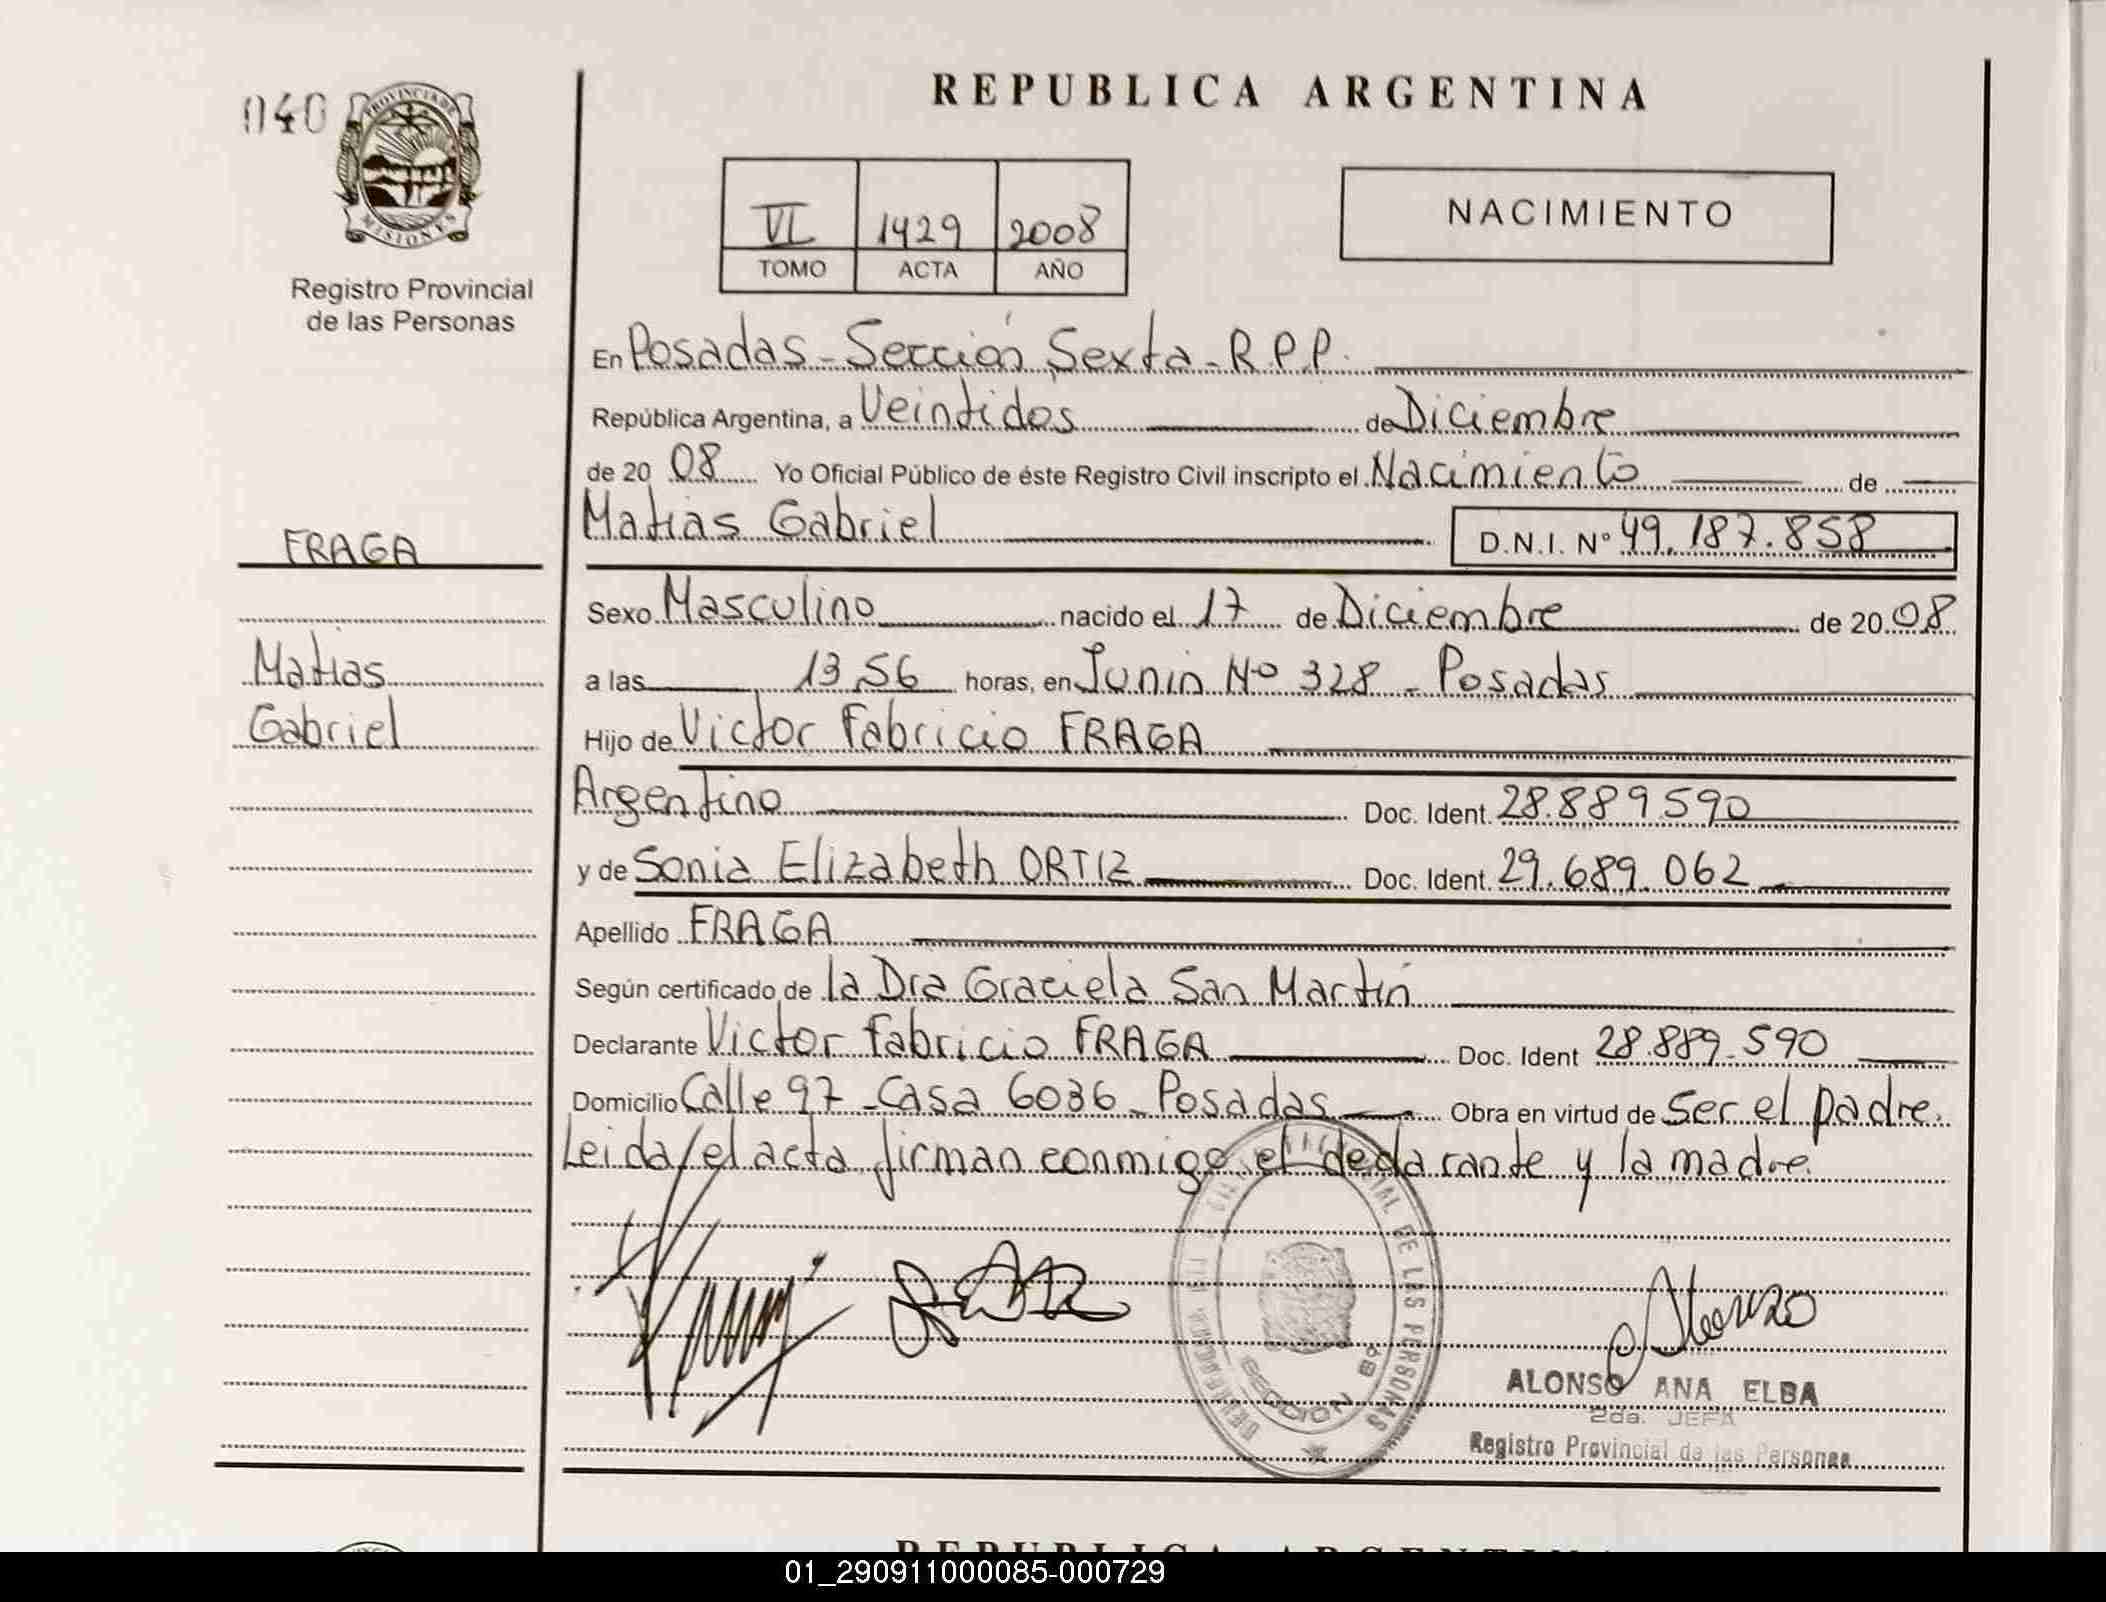 040
PROVINCIA DE
MISIONES
Registro Provincial
de las Personas
REPUBLICA ARGENTINA
VI 1429 2008
TOMO ACTA AÑO
NACIMIENTO
En Posadas - Sección Sexta - R.P.P.
República Argentina, a Veintidos de Diciembre
de 20 08 Yo Oficial Público de éste Registro Civil inscripto el Nacimiento de
Matias Gabriel D.N.I. Nº 49.187.858
FRAGA
Matias
Gabriel
Sexo Masculino nacido el 17 de Diciembre de 20 08
a las 13,56 horas, en Junin Nº 328 - Posadas
Hijo de Victor Fabricio FRAGA
Argentino Doc. Ident. 28.889.590
y de Sonia Elizabeth ORTIZ Doc. Ident. 29.689.062
Apellido FRAGA
Según certificado de la Dra Graciela San Martín
Declarante Victor Fabricio FRAGA Doc. Ident 28.889.590
Domicilio Calle 97 - Casa 6036 - Posadas Obra en virtud de Ser el padre.
Leida el acta firman conmigo el declarante y la madre.
DE LAS PERSONAS
SECCION 6º
ALONSO ANA ELBA
2da. JEFA
Registro Provincial de las Personas
REPUBLICA ARGENTINA
01_290911000085-000729